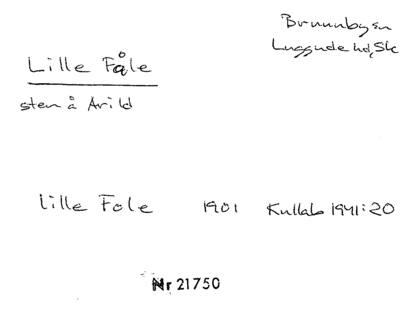 Brunnby sn
Luggude hd, Sk
Lille Fåle
sten å Arild
Lille Fole 1901 Kullab 1941:20
Nr 21750